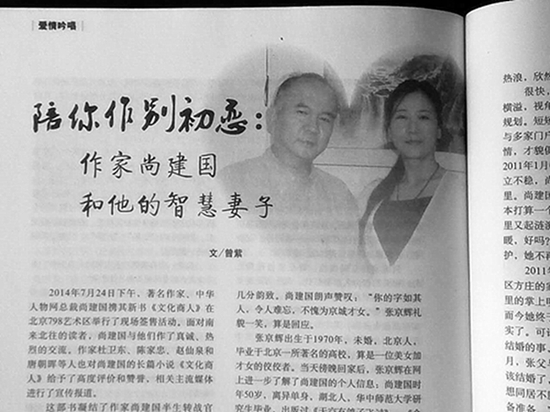 爱情吟唱
陪你作别初恋：
作家尚建国
和他的智慧妻子
文/曾紫
2014年7月24日下午，著名作家、中华
人物网总裁尚建国携其新书《文化商人》在
北京798艺术区举行了现场签售活动，面对南
来北往的读者，尚建国与他们作了真诚、热
烈的交流。作家杜卫东、陈家忠、赵仙泉和
唐朝晖等人也对尚建国的长篇小说《文化商
人》给予了高度评价和赞誉，相关主流媒体
进行了宣传报道。
这部书凝结了作家尚建国半生转战官
几分韵致。尚建国朗声赞叹：“你的字如其
人，令人难忘，不愧为京城才女。”张京辉礼
貌一笑，算是回应。
张京辉出生于1970年，未婚，北京人，
毕业于北京一所著名的高校，算是一位美女加
才女的佼佼者。当天傍晚回家后，张京辉在网
上进一步了解了尚建国的个人信息：尚建国时
年50岁，离异单身，湖北人，华中师范大学研
热浪，欣然
很快，
横溢，视角
规划。短短
与多家门户
情，才貌俱
2011年1月
立不稳，尚
里。尚建国
本打算一个
里又起涟漪
暖，好吗？
护，她不再
2011
区方庄的家
里的掌上明
而今她终于
实了。可谁
结婚的事，
时，张父
该结婚了
也想开了
备准备。